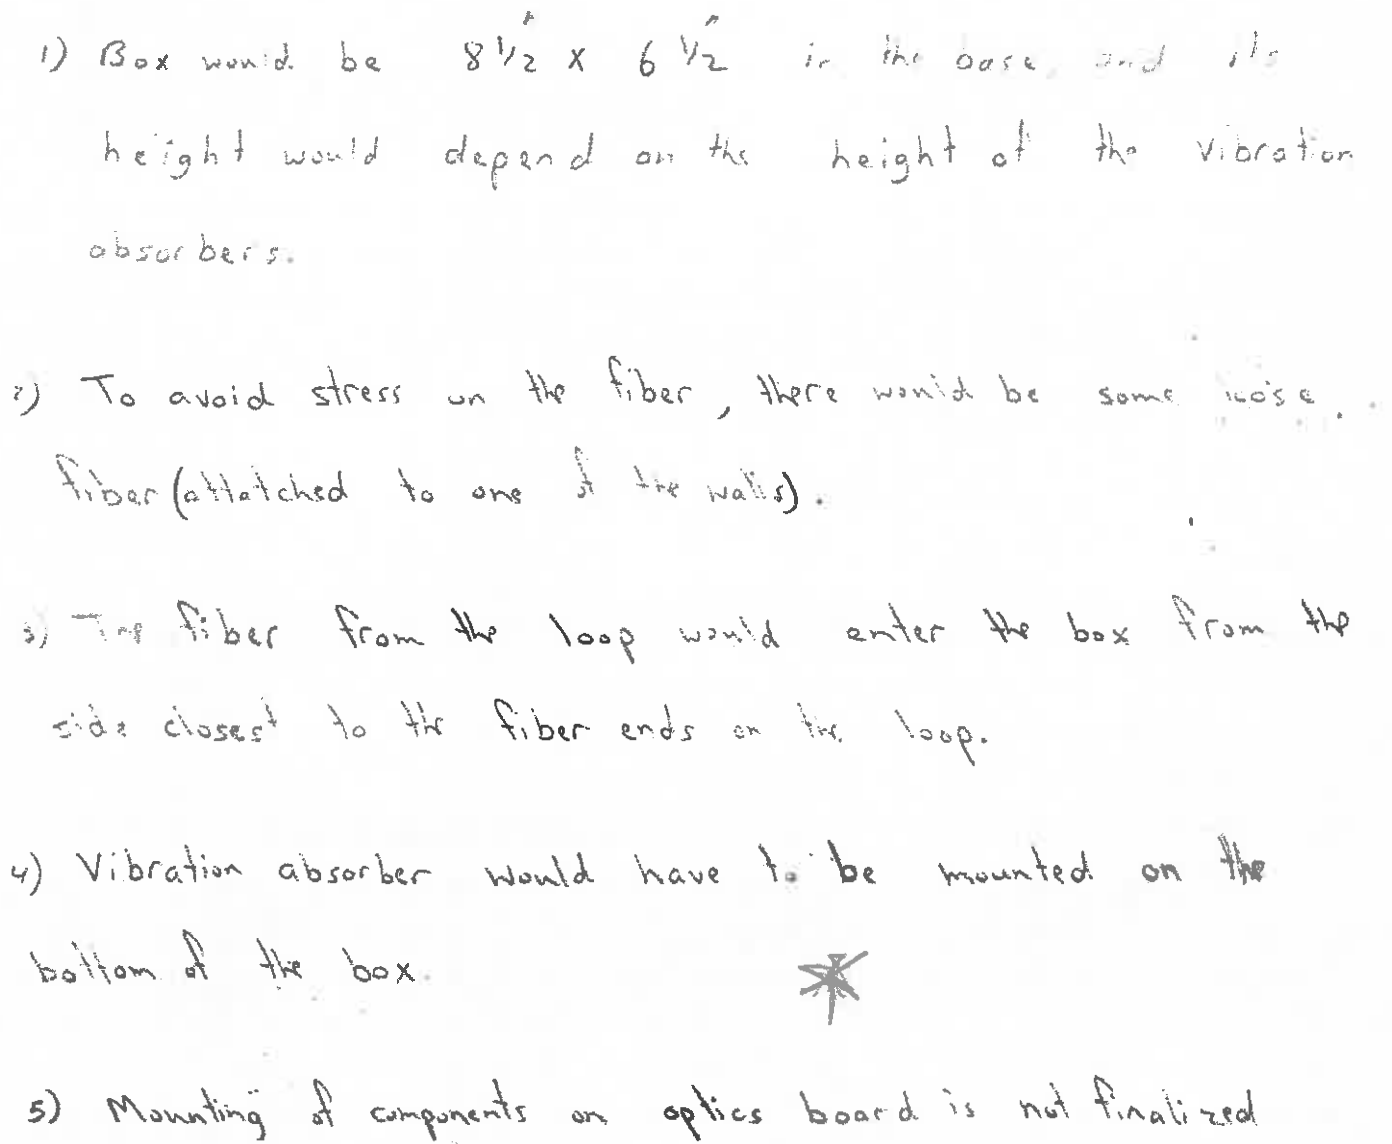 1) Box would be 8 1/2" x 6 1/2" in the base, and its
height would depend on the height of the vibration
absorbers.
2) To avoid stress on the fiber, there would be some loose
fiber (attatched to one of the walls).
3) The fiber from the loop would enter the box from the
side closest to the fiber ends on the loop.
4) Vibration absorber would have to be mounted on the
bottom of the box.
5) Mounting of components on optics board is not finalized